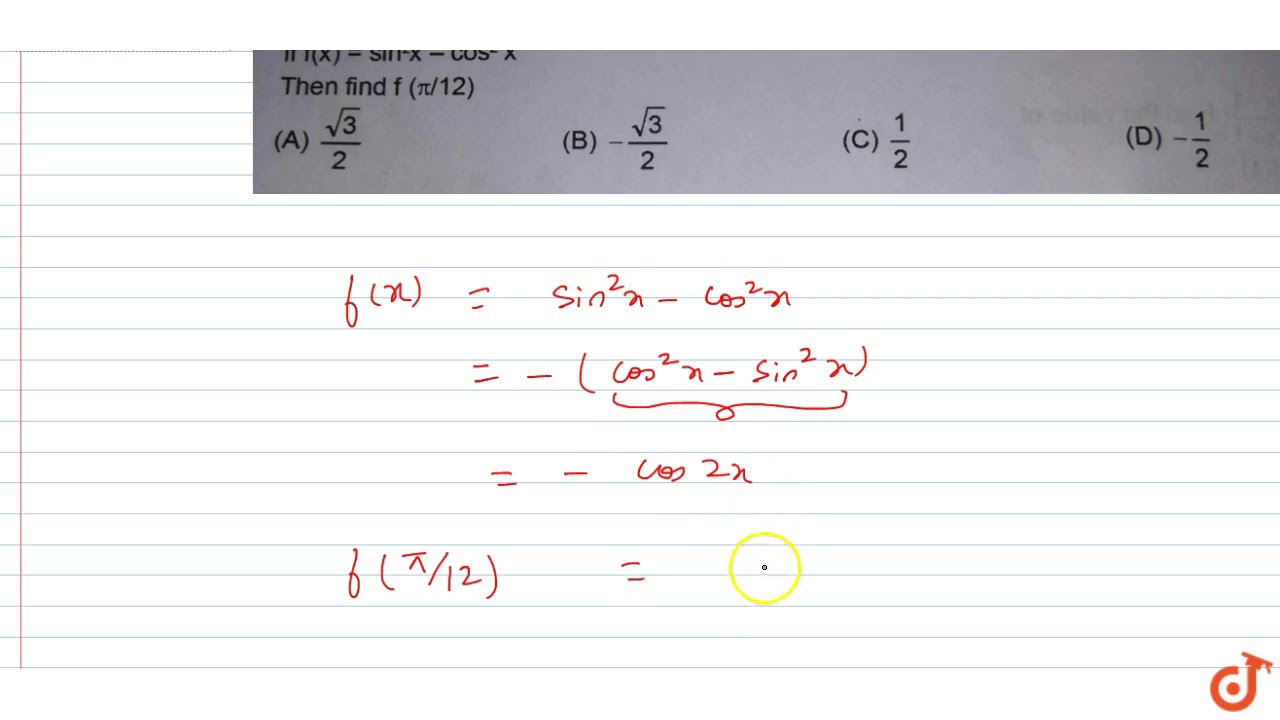 If f(x) = sin²x – cos² x
Then find f (π/12)
(A) √3/2 (B) –√3/2 (C) 1/2 (D) –1/2
f(x) = sin²x – cos²x
= – (cos²x – sin²x)
= – cos 2x
f(π/12) =